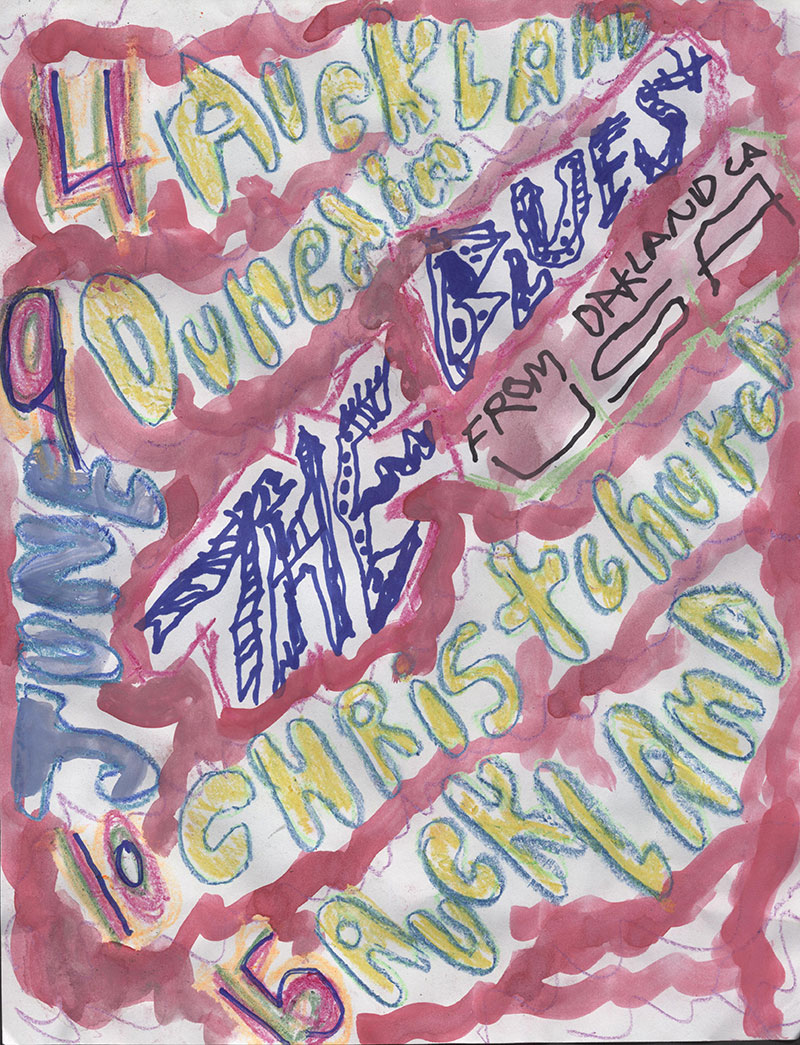 4 AUCKLAND
9 Dunedin
THE BLUEST
FROM OAKLAND CA
USA
JUNE
10 CHRIStchurch
15 AUCKLAND